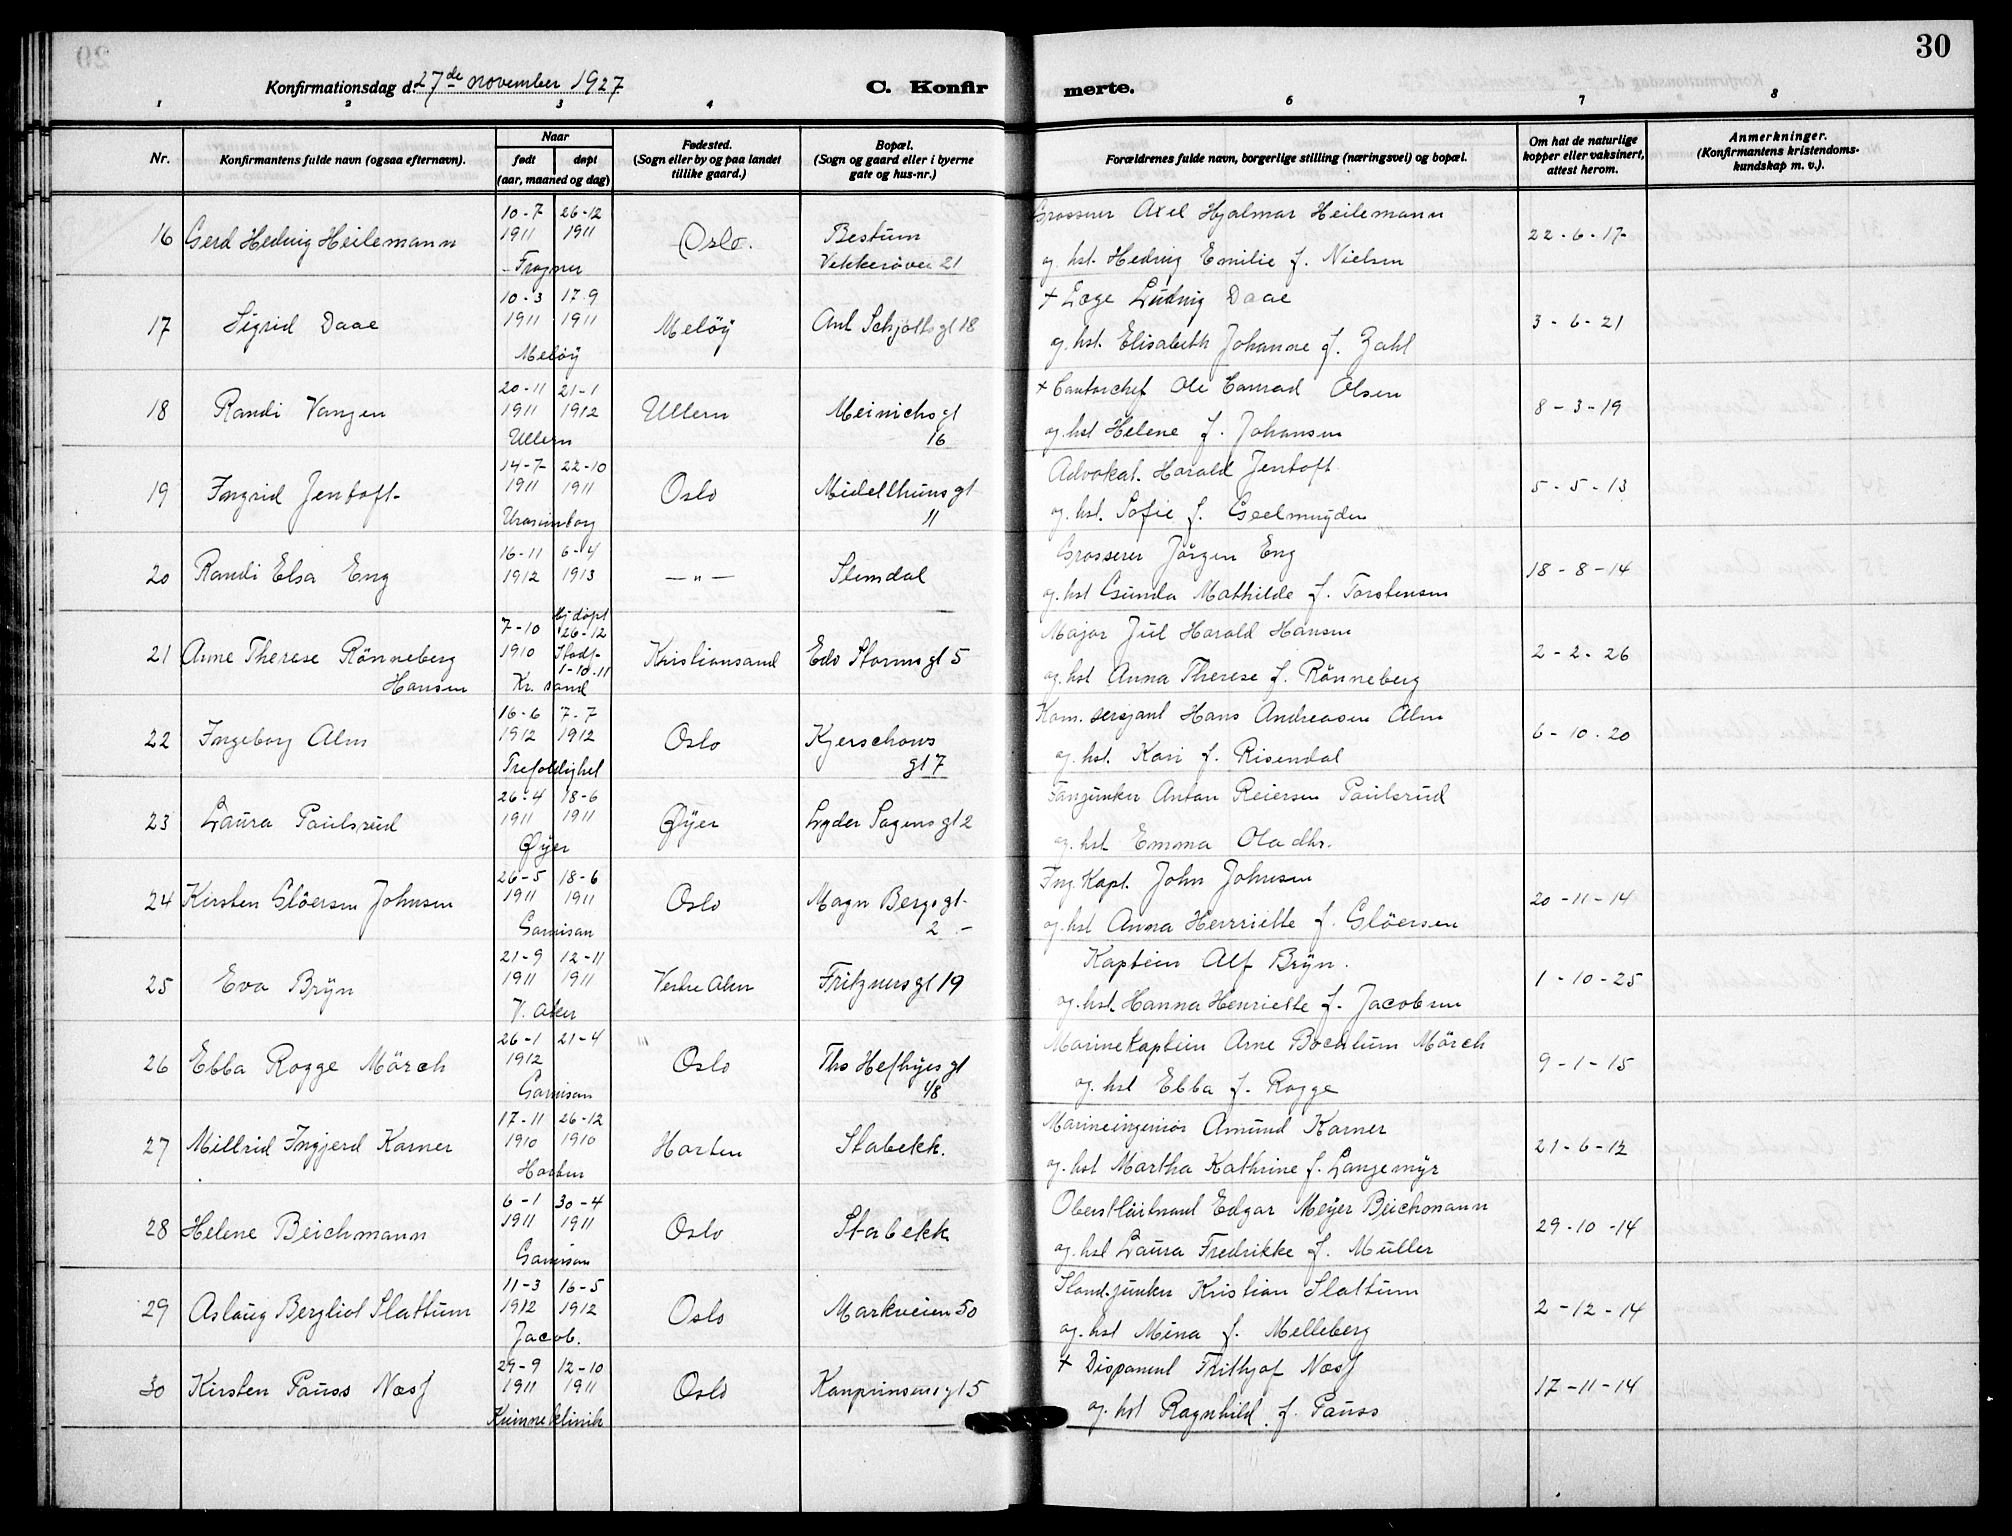 30
Konfirmationsdag d. 27de november 1927
C. Konfirmerte.
1 2 3 4 6 7 8
Nr.
Konfirmantens fulde navn (ogsaa efternavn).
Naar
født døpt
(aar, maaned og dag)
Fødested.
(Sogn eller by og paa landet
tillike gaard.)
Bopæl.
(Sogn og gaard eller i byerne
gate og hus-nr.)
Forældrenes fulde navn, borgerlige stilling (næringsvei) og bopæl.
Om hat de naturlige
kopper eller vaksinert,
attest herom.
Anmerkninger.
(Konfirmantens kristendoms-
kundskap m. v.).
10-7 26-12 Grosserer Axel Hjalmar Heilemann
16 Gerd Hedvig Heilemann 1911 1911 Oslo. Bestum 22-6-17
Frogner Vekkerøvei 21 og hst. Hedvig Emilie f. Nielsen
10-3 17-9 + Læge Ludvig Daae
17 Sigrid Daae 1911 1911 Meløy Ant Schjøttsgt 18 3-6-21
Meløy og hst. Elisabeth Johanne f. Zahl
20-11 21-1 + Contorchef Ole Conrad Olsen
18 Randi Vangen 1911 1912 Ullern Meinichsgt 8-3-19
Ullern 16 og hst Helene f. Johansen
14-7 22-10 Advokat. Harald Jentoft
19 Ingrid Jentoft 1911 1911 Oslo Midelthunsgt 5-5-13
Uranienborg 11 og hst. Sofie f. Geelmuyden
16-11 6-4 Grosserer Jörgen Eng
20 Randi Elsa Eng 1912 1913 —"— Slemdal 18-8-14
og hst Gunda Mathilde f. Torstensen
7-10 Hj døpt 26-12 Major Jul Harald Hansen
21 Anne Therese Rönneberg 1910 Stadf. Kristiansand Edv Stormsgt 5 2-2-26
Hansen 1-10-11
Kr. sand og hst Anna Therese f. Rönneberg
16-6 7-7 Kom. sersjant Hans Andreasen Alm
22 Ingeborg Alm 1912 1912 Oslo Kjerschows 6-10-20
Trefoldighet gt 7 og hst. Kari f. Risendal
26-4 18-6 Fanjunker Anton Reiersen Paulsrud
23 Laura Paulsrud 1911 1911 Øyer Lyder Sagensgt 2
Øyer og hst Emma Oladtr.
26-5 18-6 Ing. Kapt. John Johnsen
24 Kirsten Glöersen Johnsen 1911 1911 Oslo Magn Bergsgt 20-11-14
Garnison 2 og hst Anna Henriette f. Glöersen
21-9 12-11 Kaptein Alf Brÿn.
25 Eva Brÿn 1911 1911 Vestre Aker Fritznersgt 19 1-10-25
V. Aker og hst Hanna Henriette f. Jacobsen
26-1 21-4 Marinekaptein Arne Mörch
26 Ebba Rogge Mörch 1912 Oslo Ths Heftyes gt 9-1-15
Garnison 48 og hst Ebba f. Rogge
17-11 26-12 Marineingeniør Amund Karner
27 Millrid Ingjerd Karner 1910 1910 Horten Stabekk. 21-6-12
Horten og hst Martha Kathrine f. Langemÿr
6-1 30-4 Oberstløitnant Edgar Meÿer Beichmann
28 Helene Beichmann 1911 1911 Oslo Stabekk 29-10-14
Garnison og hst Laura Fredrikke f. Müller
11-3 16-5 Stand.junker Kristian Slattum
29 Aslaug Bergliot Slattum 1912 1912 Oslo Markveien 50 2-12-14
Jacob. og hst Mina f. Melleberg
29-9 12-10 + Disponent Frithjof Næss
30 Kirsten Pauss Næss 1911 1911 Oslo Kronprinsensgt 5 17-11-14
Kvinneklinik og hst Ragnhild f. Pauss